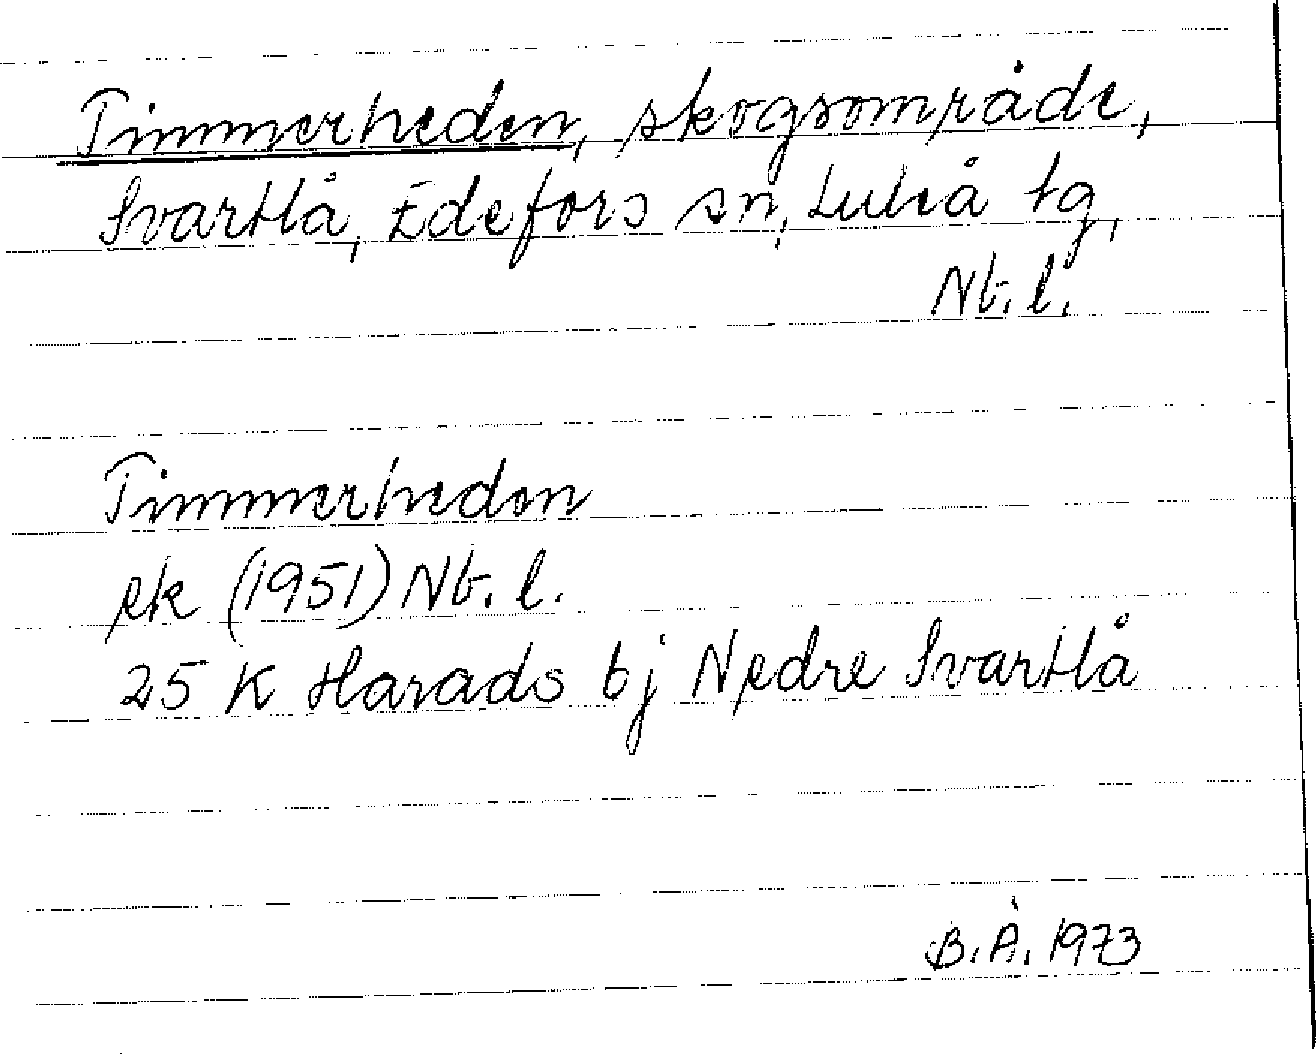 Timmerheden, skogsområde,
Svartlå, Edefors sn, Luleå tg,
Nb. l.
Timmerheden
ek (1951) Nb. l.
25 K Harads bj Nedre Svartlå
B.Å. 1973